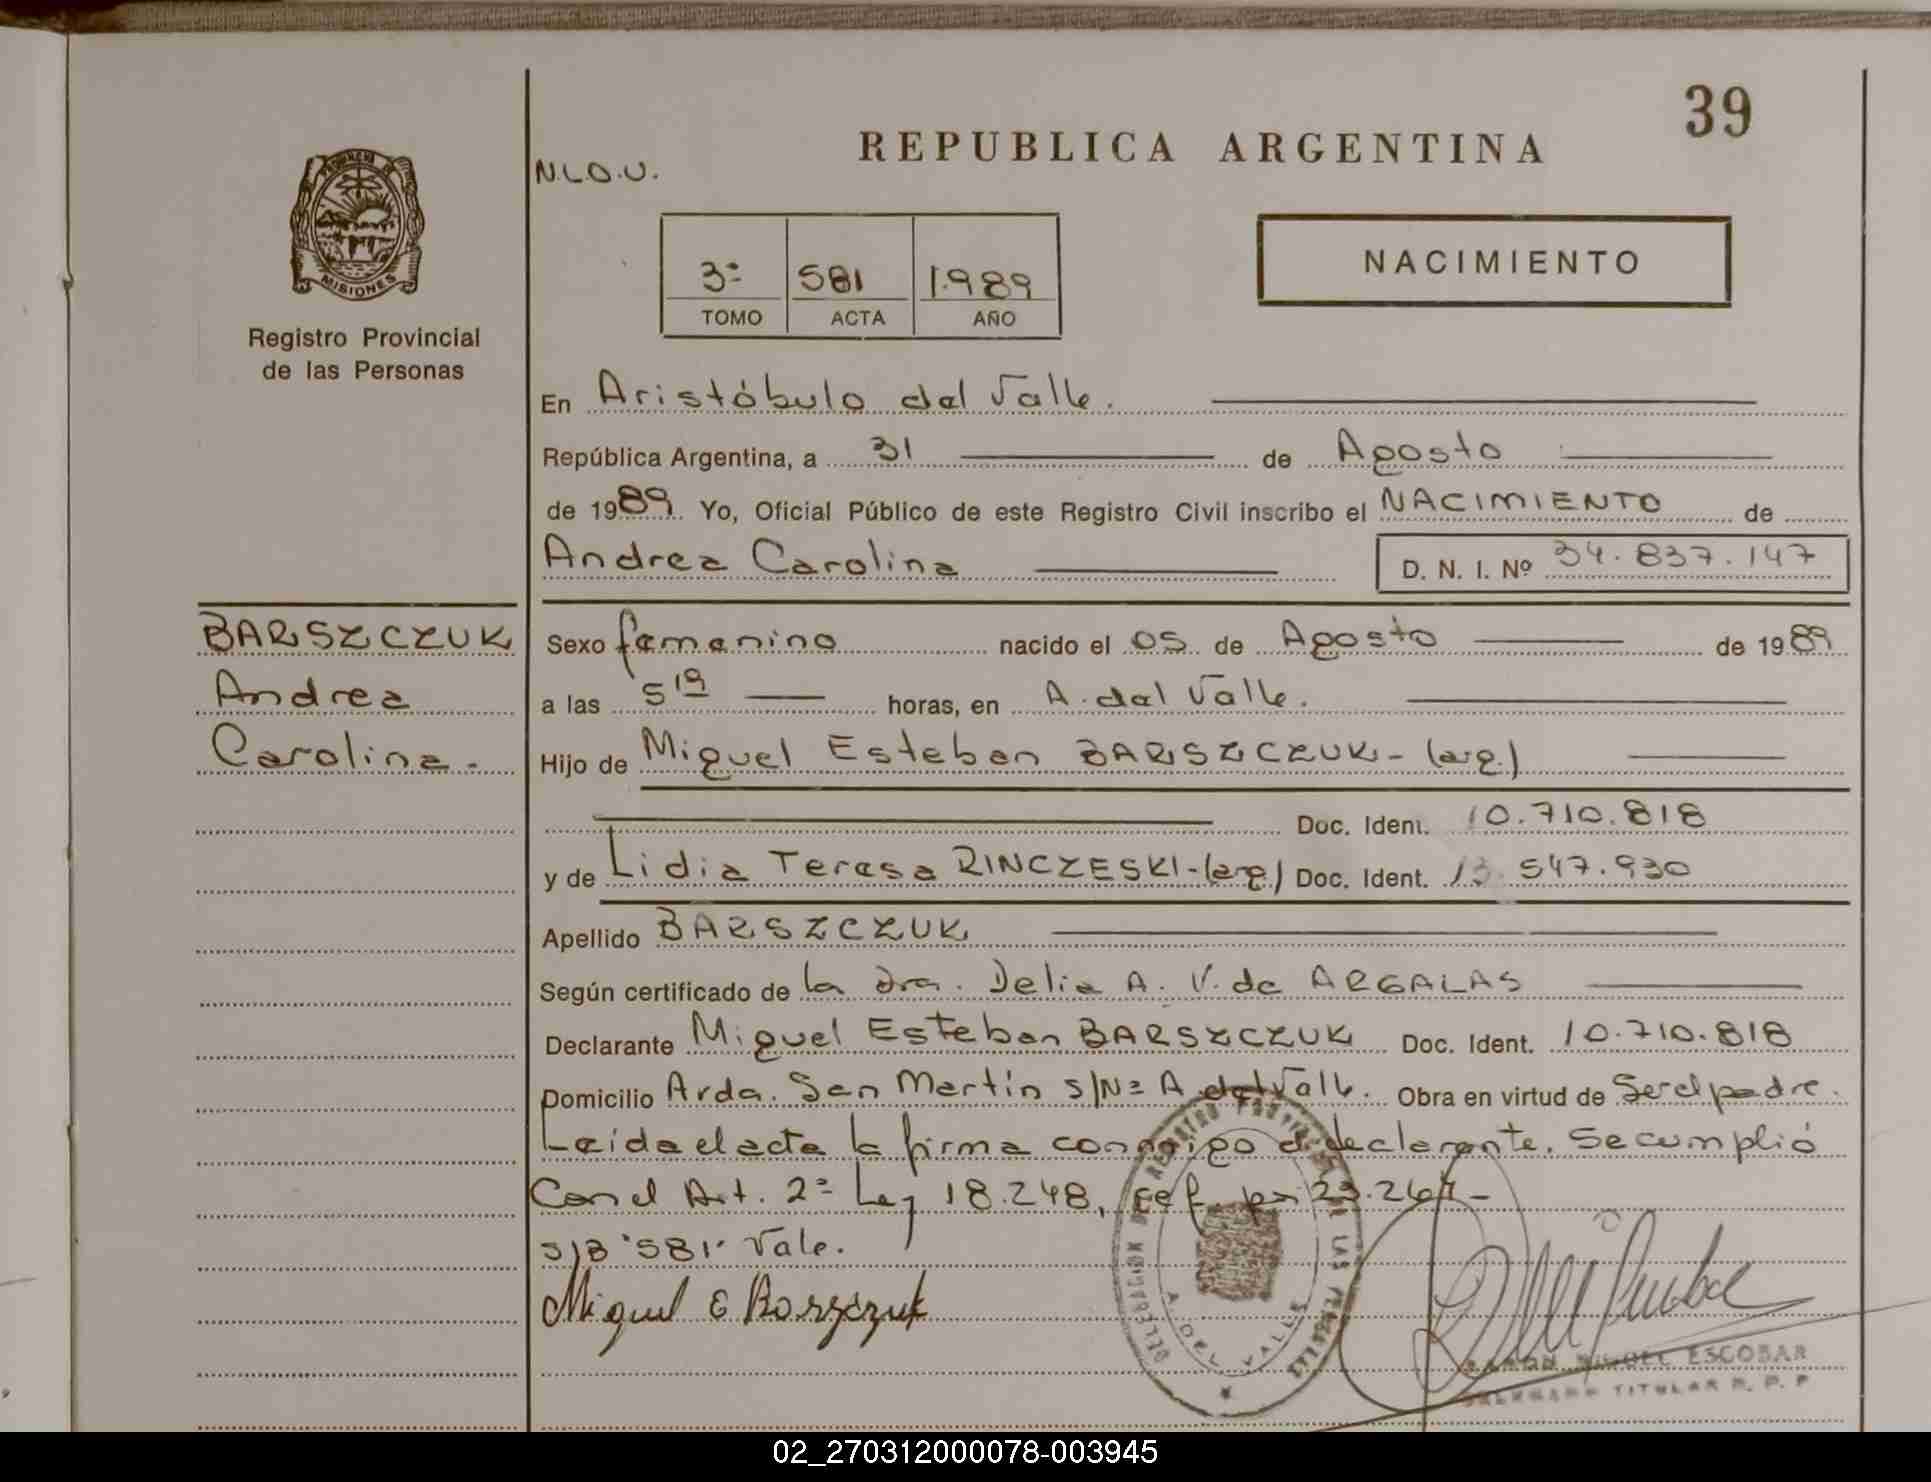 39
REPUBLICA ARGENTINA
N.L.O.U.
NACIMIENTO
3º 581 1.989
TOMO ACTA AÑO
MISIONES
Registro Provincial
de las Personas
En Aristóbulo del Valle.
República Argentina, a 31 de Agosto
de 1989. Yo, Oficial Público de este Registro Civil inscribo el NACIMIENTO de
Andrea Carolina D. N. I. Nº 34.837.147
BARSZCZUK
Andrea
Carolina.-
Sexo femenino nacido el 05 de Agosto de 1989
a las 5 19 horas, en A. del Valle.
Hijo de Miguel Esteban BARSZCZUK- (arg.)
Doc. Ident. 10.710.818
y de Lidia Teresa RINCZESKI-(arg) Doc. Ident. 13.547.930
Apellido BARSZCZUK
Según certificado de la Dra. Delia A. V. de ARGALAS
Declarante Miguel Esteban BARSZCZUK Doc. Ident. 10.710.818
Domicilio Avda. San Martín S/Nº A. del Valle. Obra en virtud de Ser el padre.
Leida el acta la firma conmigo el declarante. Se cumplió
Con el Art. 2º Ley 18.248, ref. por 23.264-
S/B "581" Vale.
Miguel E Barszczuk
DELEGACION DEL REGISTRO PROVINCIAL DE LAS PERSONAS
A. DEL VALLE
RAMON MIGUEL ESCOBAR
TITULAR R. P. P
02_270312000078-003945